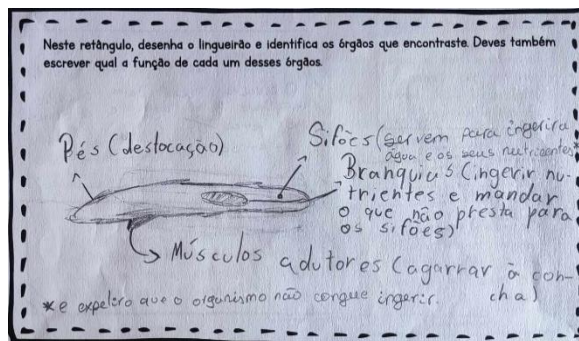 Neste retângulo, desenha o lingueirão e identifica os órgãos que encontraste. Deves também
escrever qual a função de cada um desses órgãos.
Pés (deslocação)
Sifões (servem para ingerir a
água e os seus nutrientes*
Branquias (ingerir nu-
trientes e mandar
o que não presta para
os sifões)
Músculos adutores (agarrar à con-
cha)
*e expelir o que o organismo não congue ingerir.